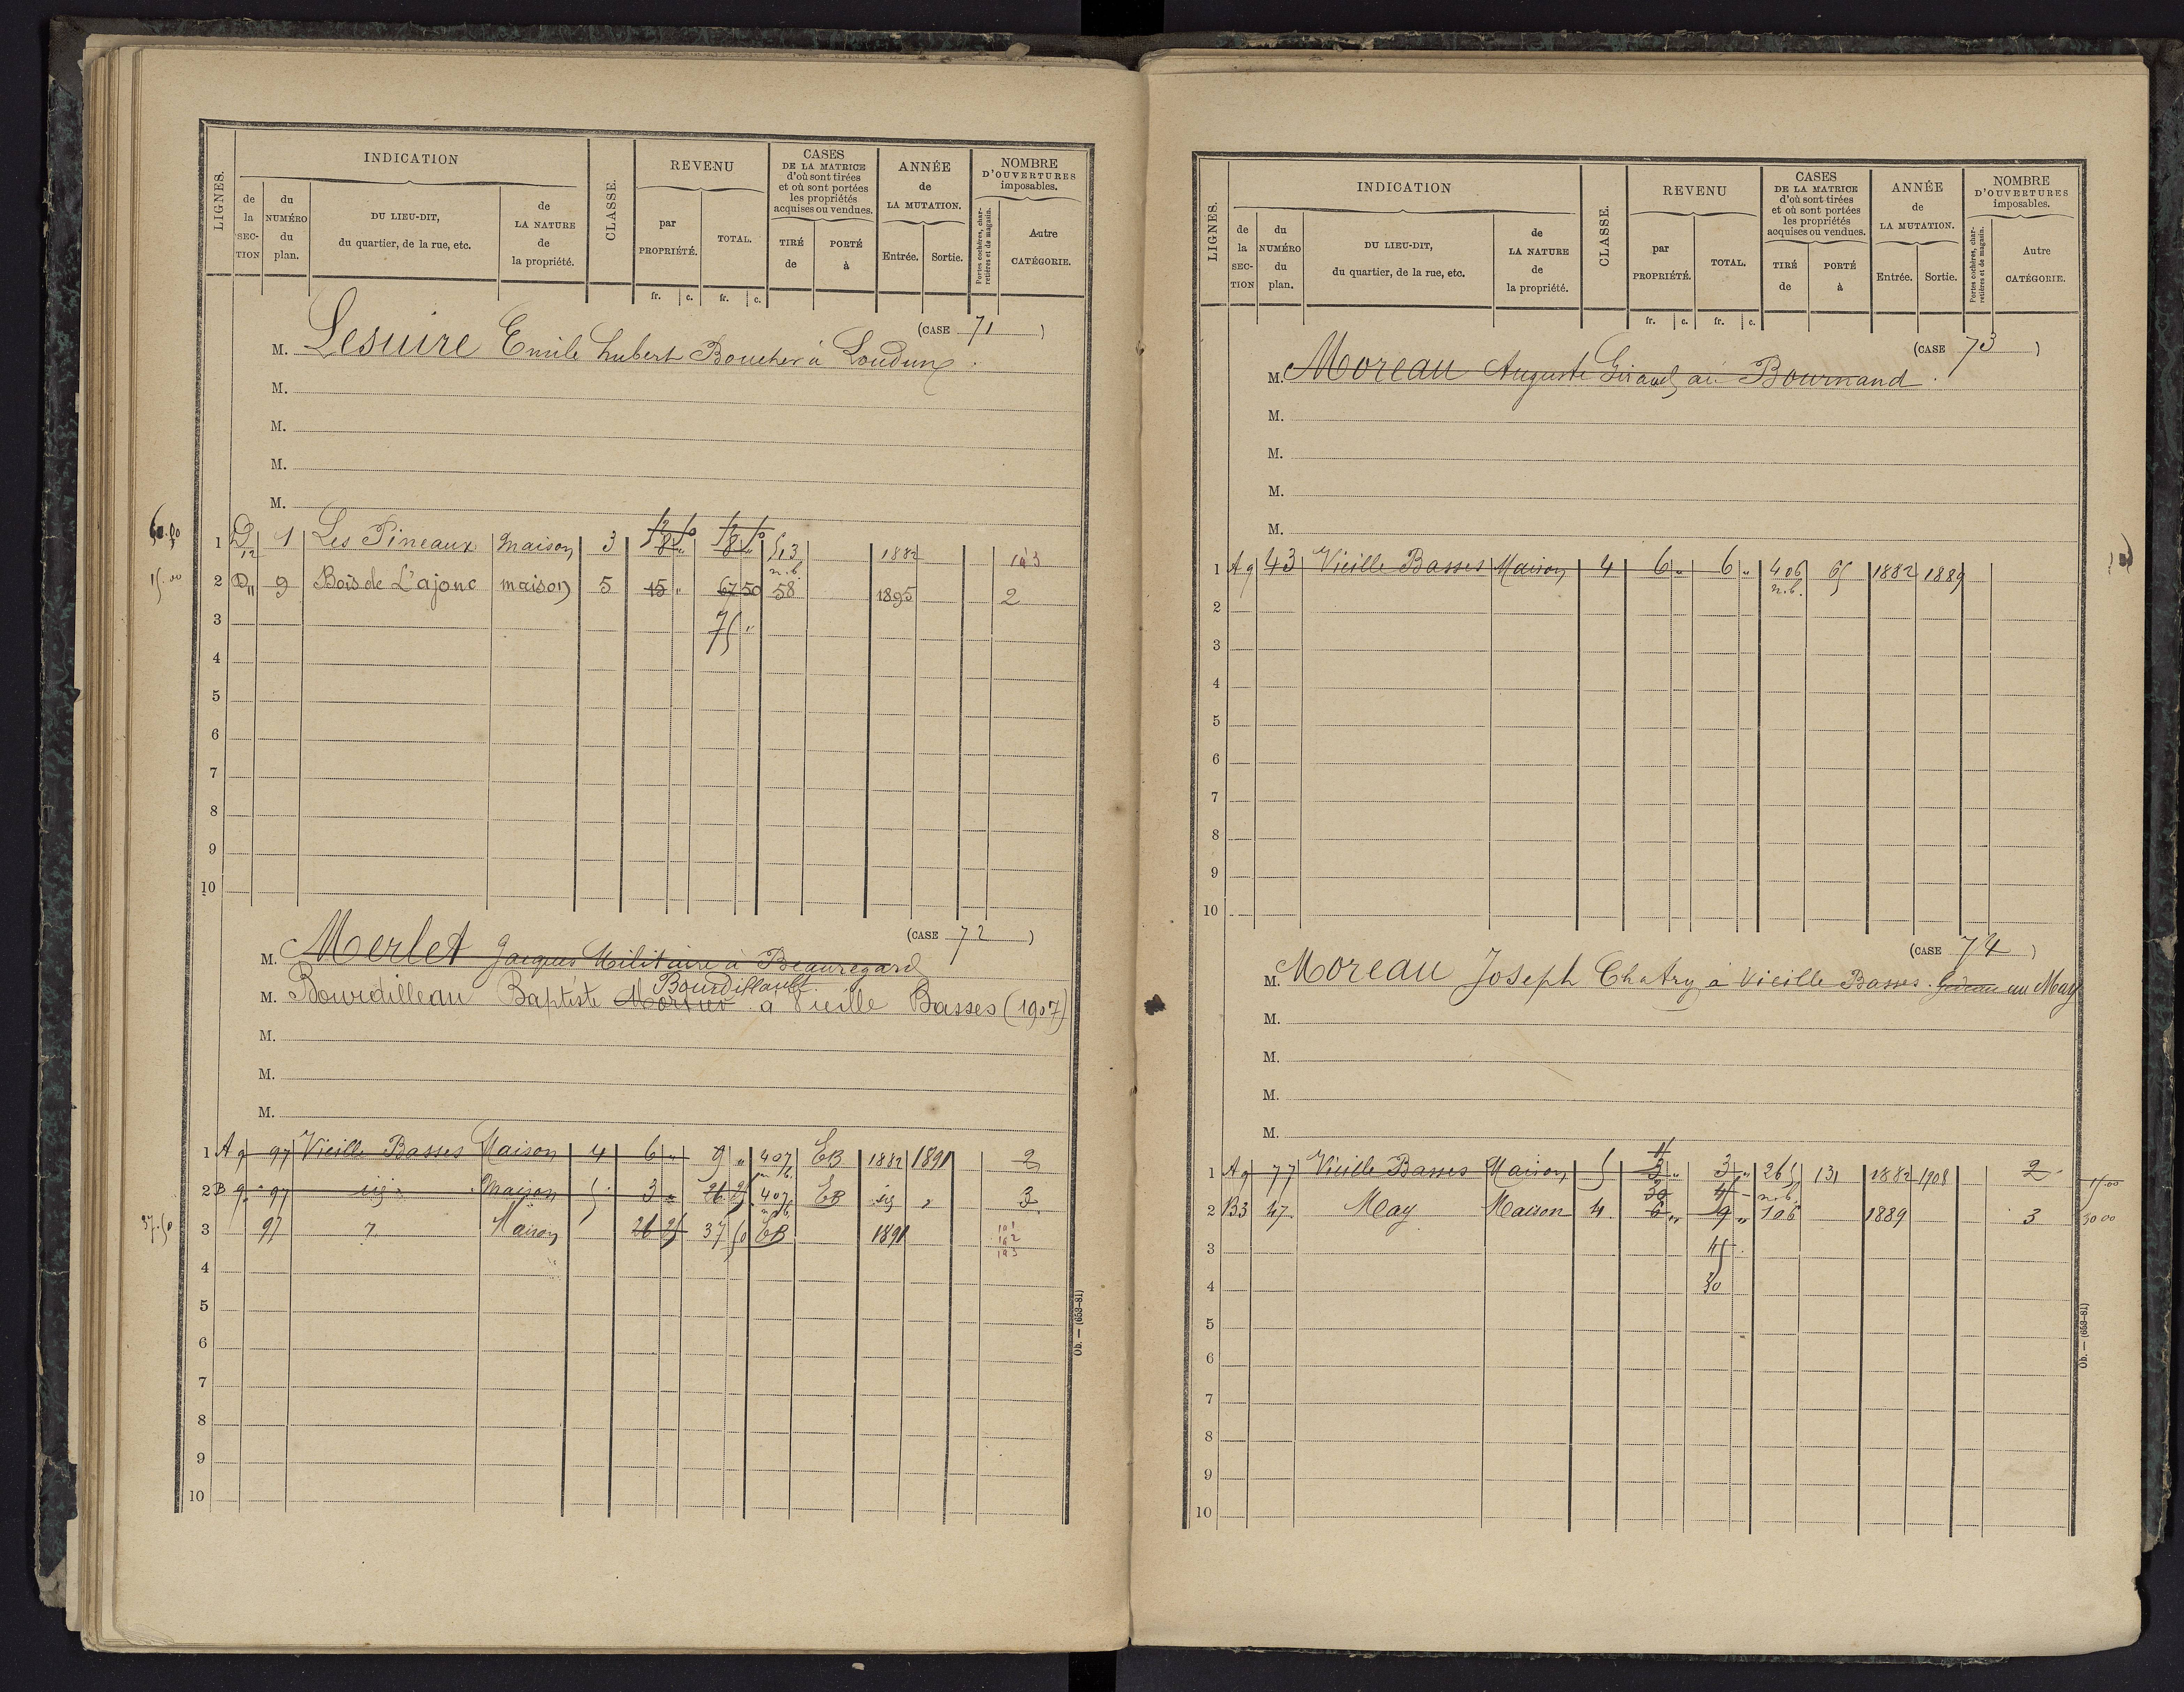 LIGNES.
INDICATION
de la SECTION
du NUMÉRO du plan.
DU LIEU-DIT, du quartier, de la rue, etc.
de LA NATURE de la propriété.
CLASSE.
REVENU
par PROPRIÉTÉ.
TOTAL.
fr. c. fr. c.
CASES DE LA MATRICE d'où sont tirées et où sont portées les propriétés acquises ou vendues.
TIRÉ de
PORTÉ à
ANNÉE de LA MUTATION.
Entrée. Sortie.
NOMBRE D'OUVERTURES imposables.
Portes cochères, charretières et de magasin.
Autre CATÉGORIE.
(CASE 71)
M. Lesuire Emile hubert Boucher à Loudun.
M.
M.
M.
M.
1 D12 1 Les Pineaux Maison 3 1882
2 D11 9 Bois de L'ajonc maison 5 15 " 67 50 n.b. 58 1895 2
15.00
3 75 "
4
5
6
7
8
9
10
(CASE 72)
M. Merlet Jacques Militaire à Beauregard
Bourdillault.
M. Bourdilleau Baptiste à Vieille Basses (1907)
M.
M.
M.
1 A9 97 Vieille Basses Maison 4 6 " 9 " 407 EB 1882 1891 2
2 B 9 97 Maison 5 3 " 26 25 407 EB 3
37.50 3 97 Maison 26 25 37 50 EB 1891
4
5
6
7
8
9
10
Ob. — (653-81)
LIGNES.
INDICATION
de la SECTION
du NUMÉRO du plan.
DU LIEU-DIT, du quartier, de la rue, etc.
de LA NATURE de la propriété.
CLASSE.
REVENU
par PROPRIÉTÉ.
TOTAL.
fr. c. fr. c.
CASES DE LA MATRICE d'où sont tirées et où sont portées les propriétés acquises ou vendues.
TIRÉ de
PORTÉ à
ANNÉE de LA MUTATION.
Entrée. Sortie.
NOMBRE D'OUVERTURES imposables.
Portes cochères, charretières et de magasin.
Autre CATÉGORIE.
(CASE 73)
M. Moreau Auguste Giraud à Bournand.
M.
M.
M.
M.
1 A9 43 Vieille Basses Maison 4 6 " 6 " 406 n.b. 65 1882 1889
2
3
4
5
6
7
8
9
10
(CASE 74)
M. Moreau Joseph Chatry à Vieille Basses. au May
M.
M.
M.
M.
1 A9 77 Vieille Basses Maison 5 3 " 3 " 265 n.b. 131 1882 1908 2 15 00
2 B3 47 May Maison 4 30 6 " 9 " 106 1889 3 30 00
3 45
4 30
5
6
7
8
9
10
Ob. — (653-81)